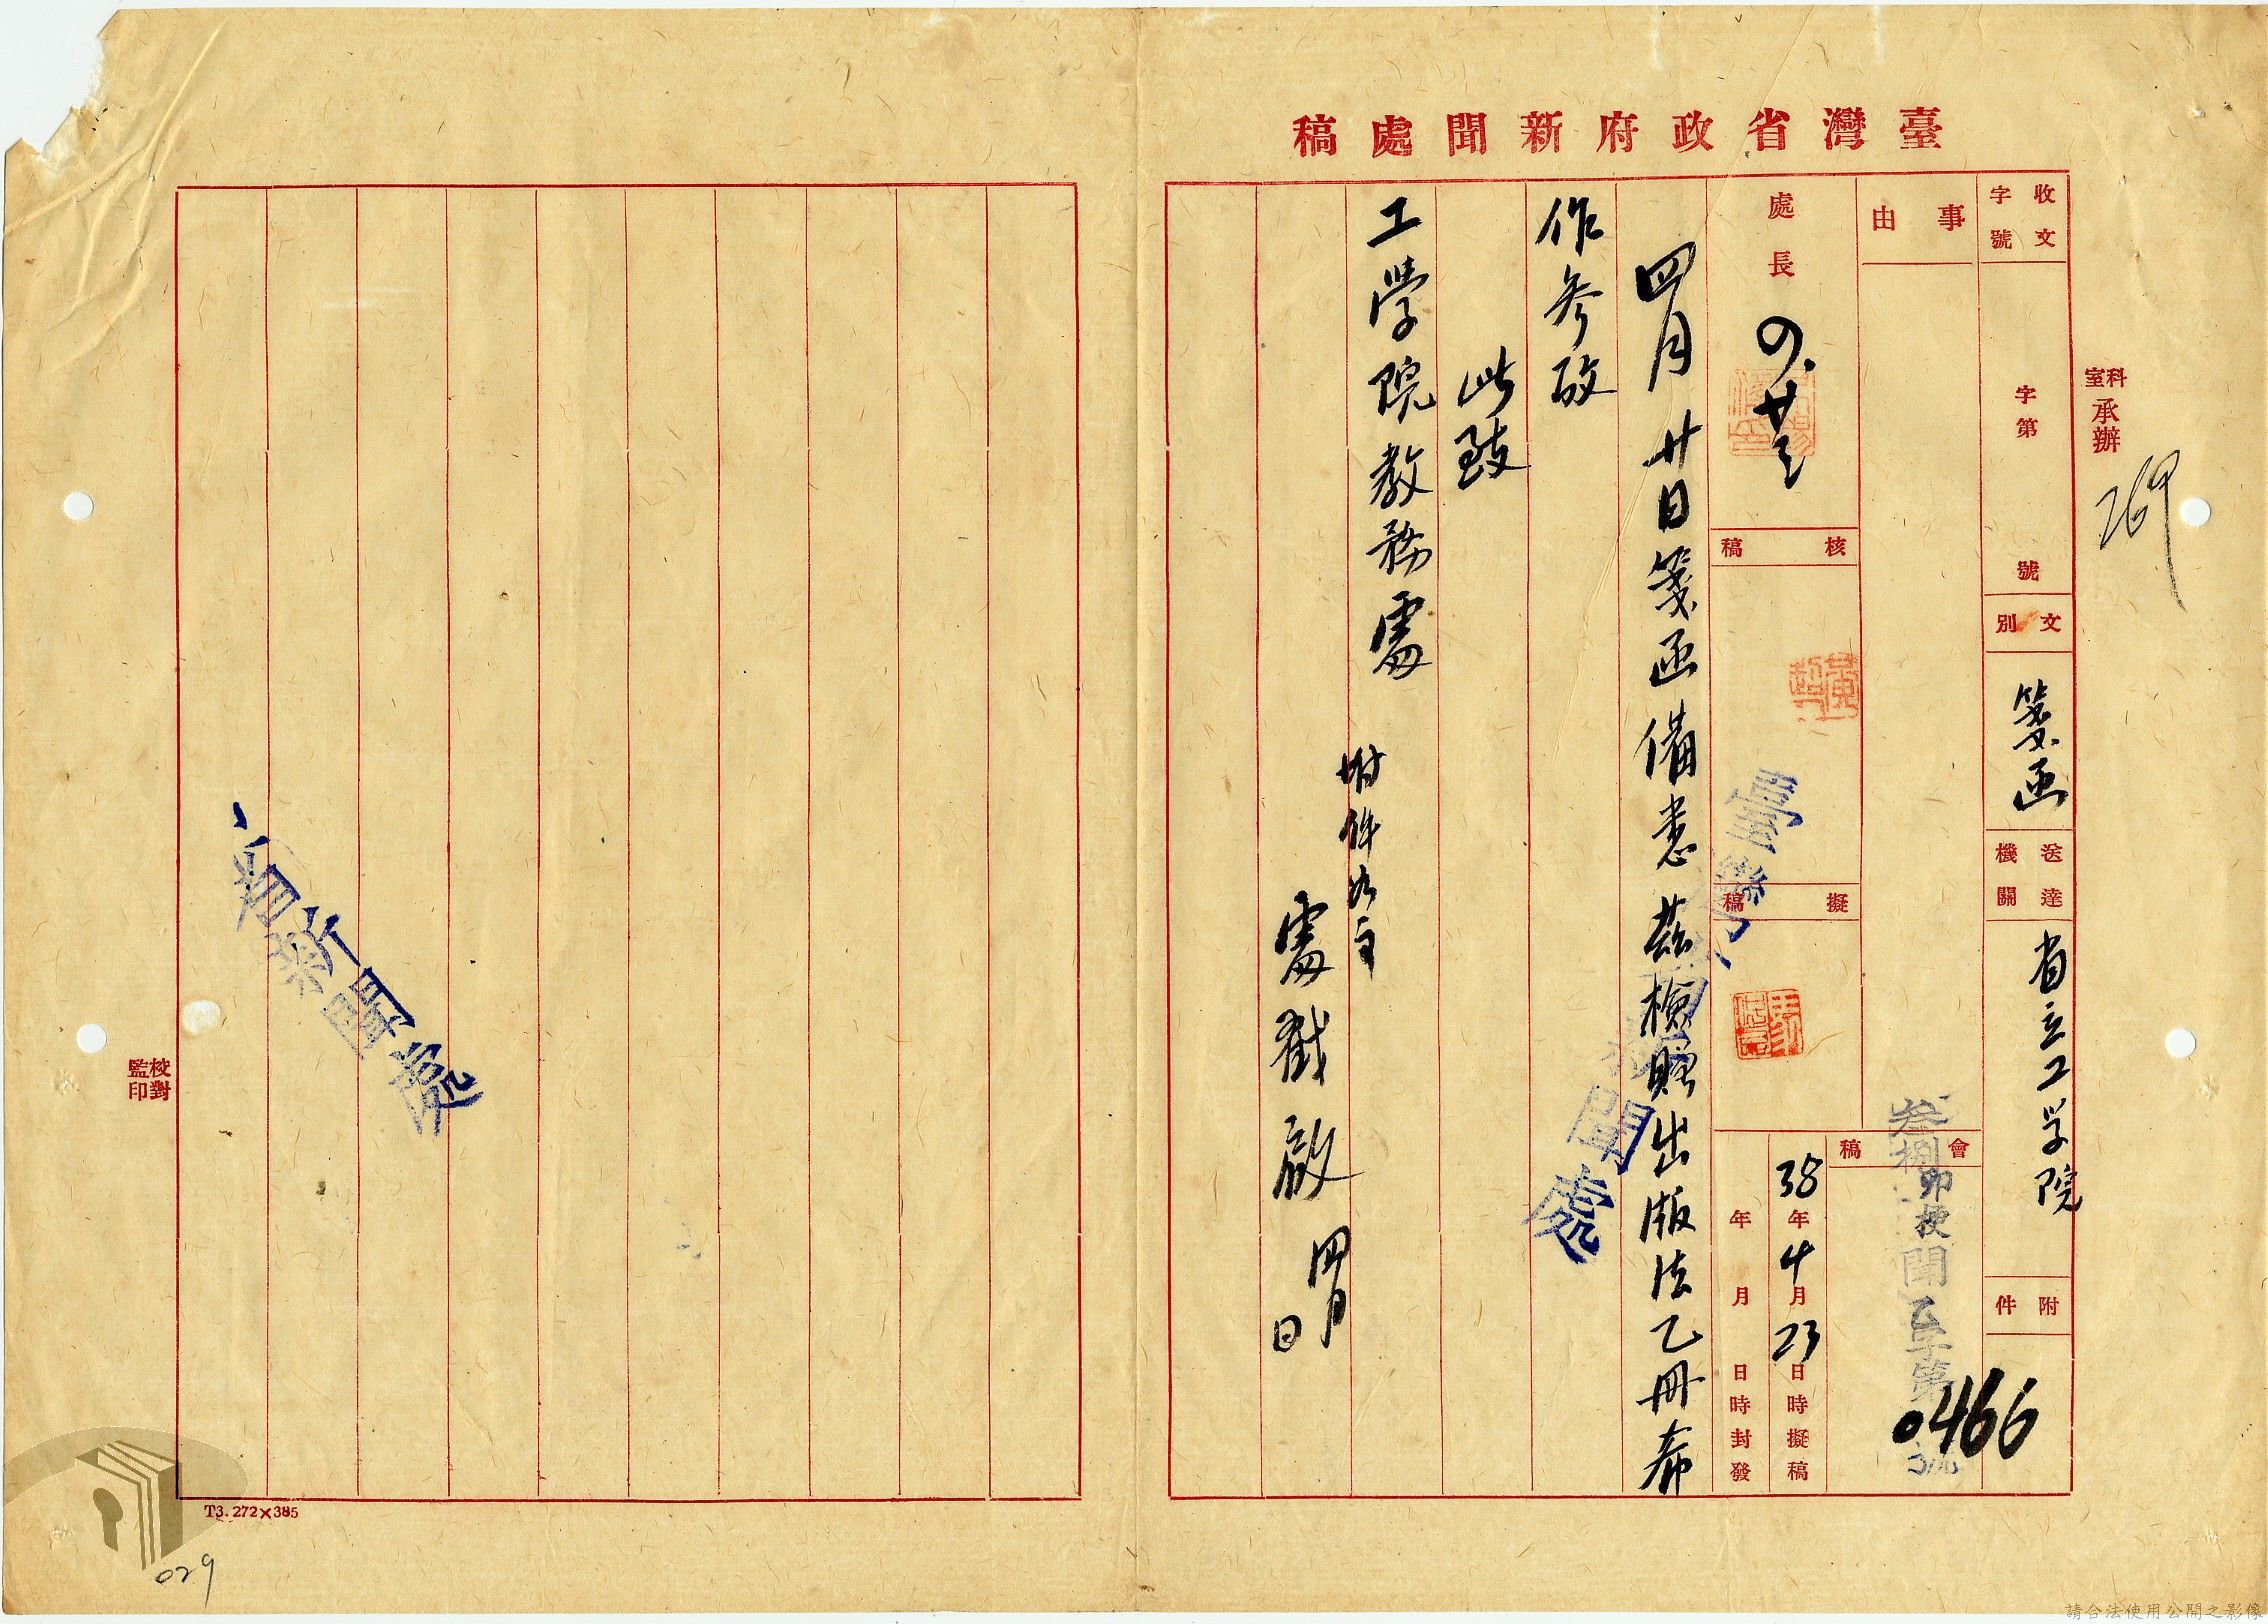 臺灣省政府新聞處稿
科室承辦
收文字號
字第 號
文別
箋函
送達機關
省立工学院
附件
事由
會稿
叁捌卯梗聞乙字第0466號
處長
四.廿三
核稿
擬稿
38年4月23日時擬稿
年 月 日時封發
四月廿日箋函備悉茲檢贈出版法乙冊希
作参攷
此致
工學院教務處
附件如文
處戳啟 四月 日
臺灣省 新聞處
省新聞處
校對
監印
T3.272×385
029
請合法使用公開之影像